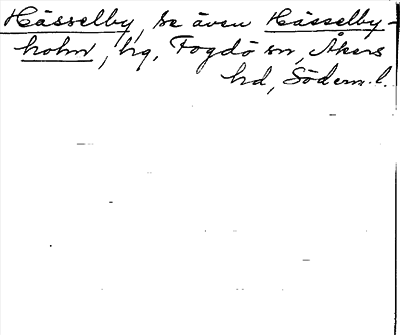 Hässelby, se även Hässelby-
holm, hg, Fogdö sn, Åkers
hd, Söderm. l.